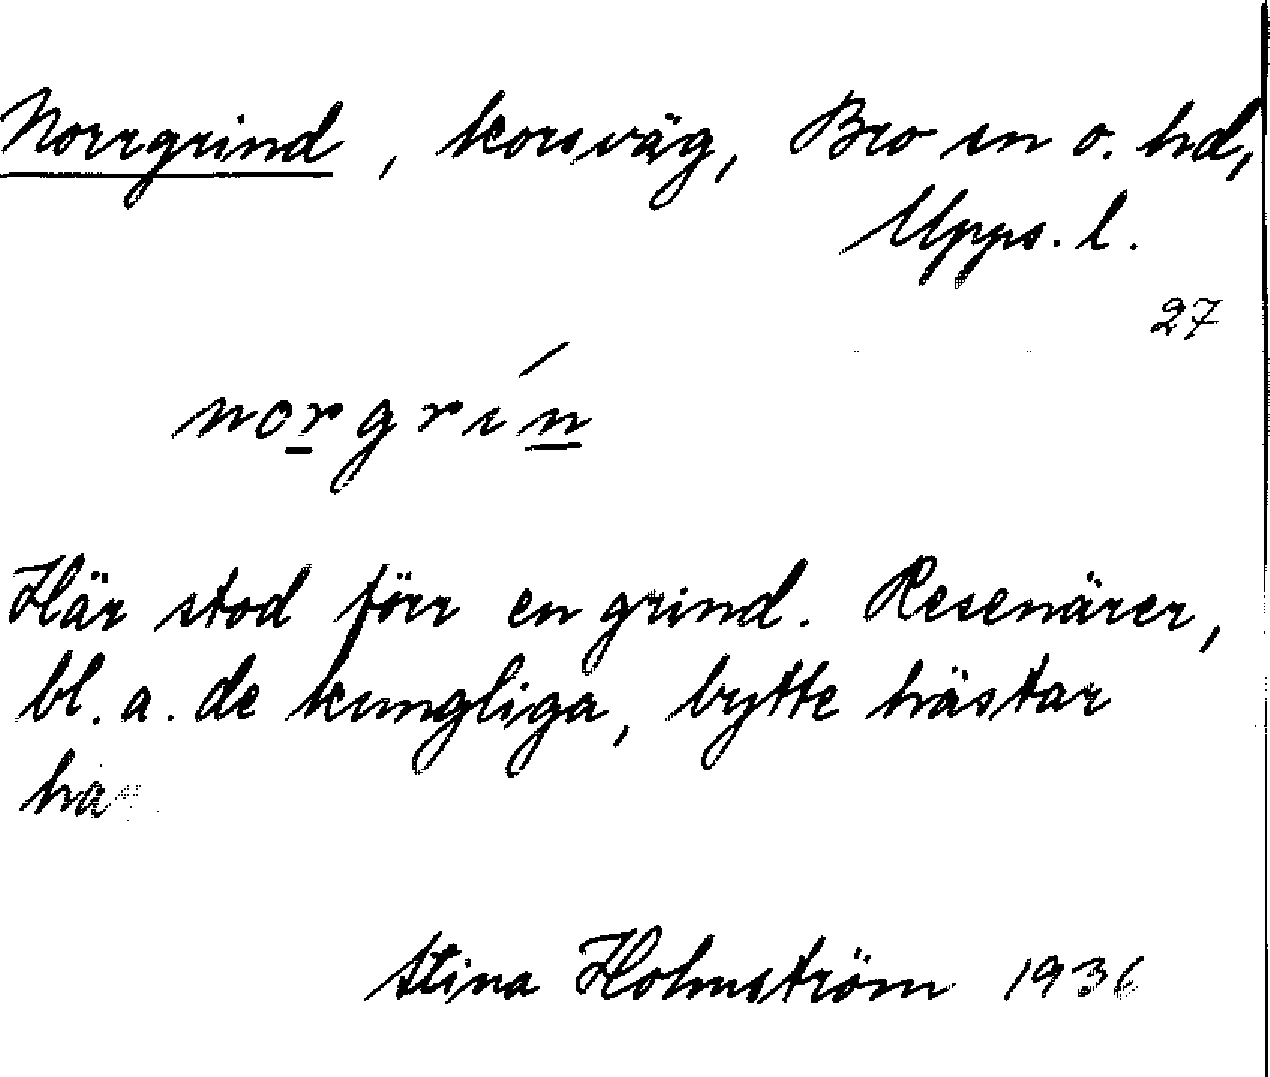 Norrgrind, korsväg, Bro sn o. hd,
Upps. l.
27
norgrín
Här stod förr en grind. Resenärer,
bl. a. de kungliga, bytte hästar
här
Stina Holmström 1936